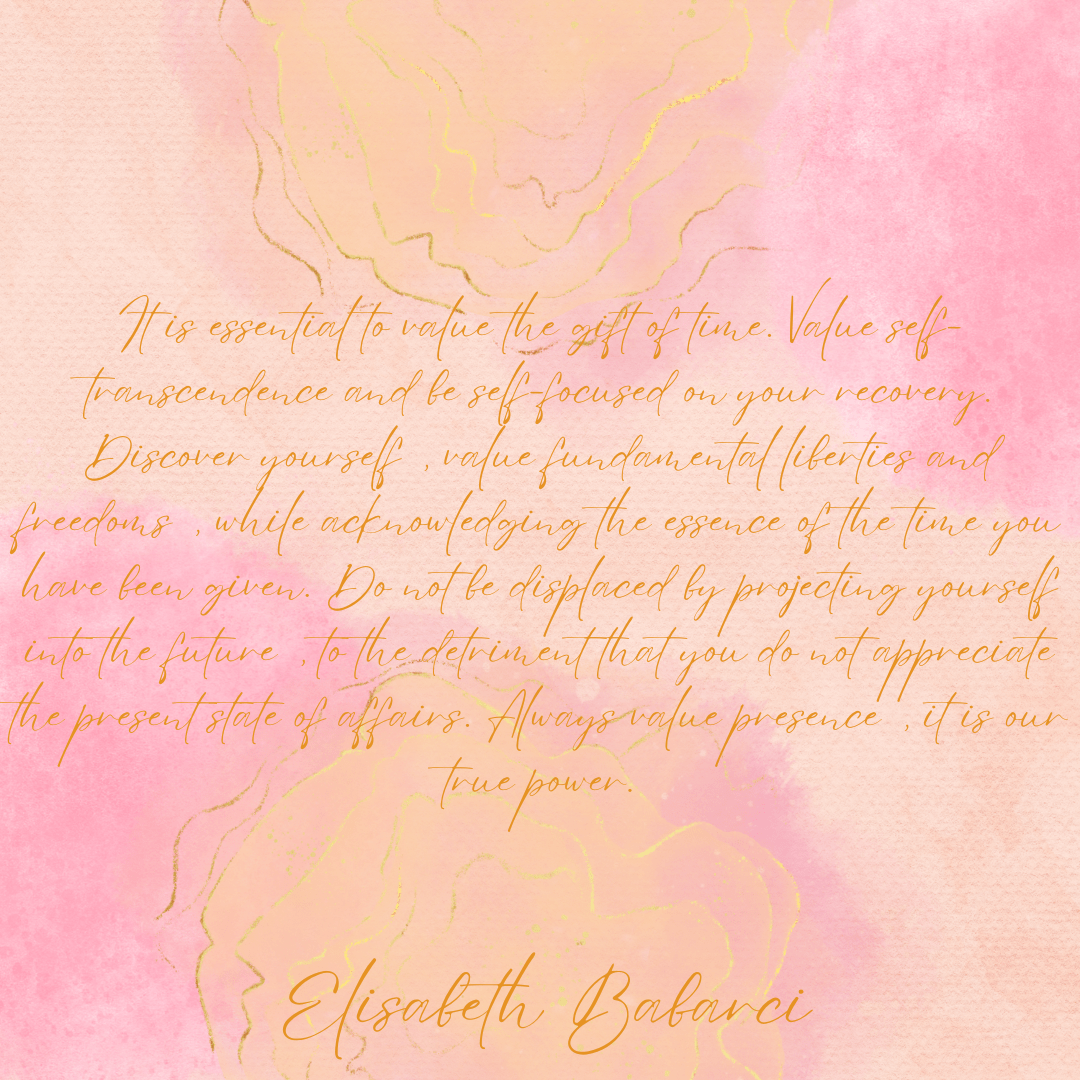 It is essential to value the gift of time. Value self-
transcendence and be self-focused on your recovery.
Discover yourself , value fundamental liberties and
freedoms , while acknowledging the essence of the time you
have been given. Do not be displaced by projecting yourself
into the future , to the detriment that you do not appreciate
the present state of affairs. Always value presence , it is our
true power.
Elisabeth Babarci